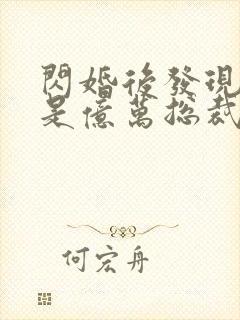 閃婚後發現
是億萬總裁
何宏舟